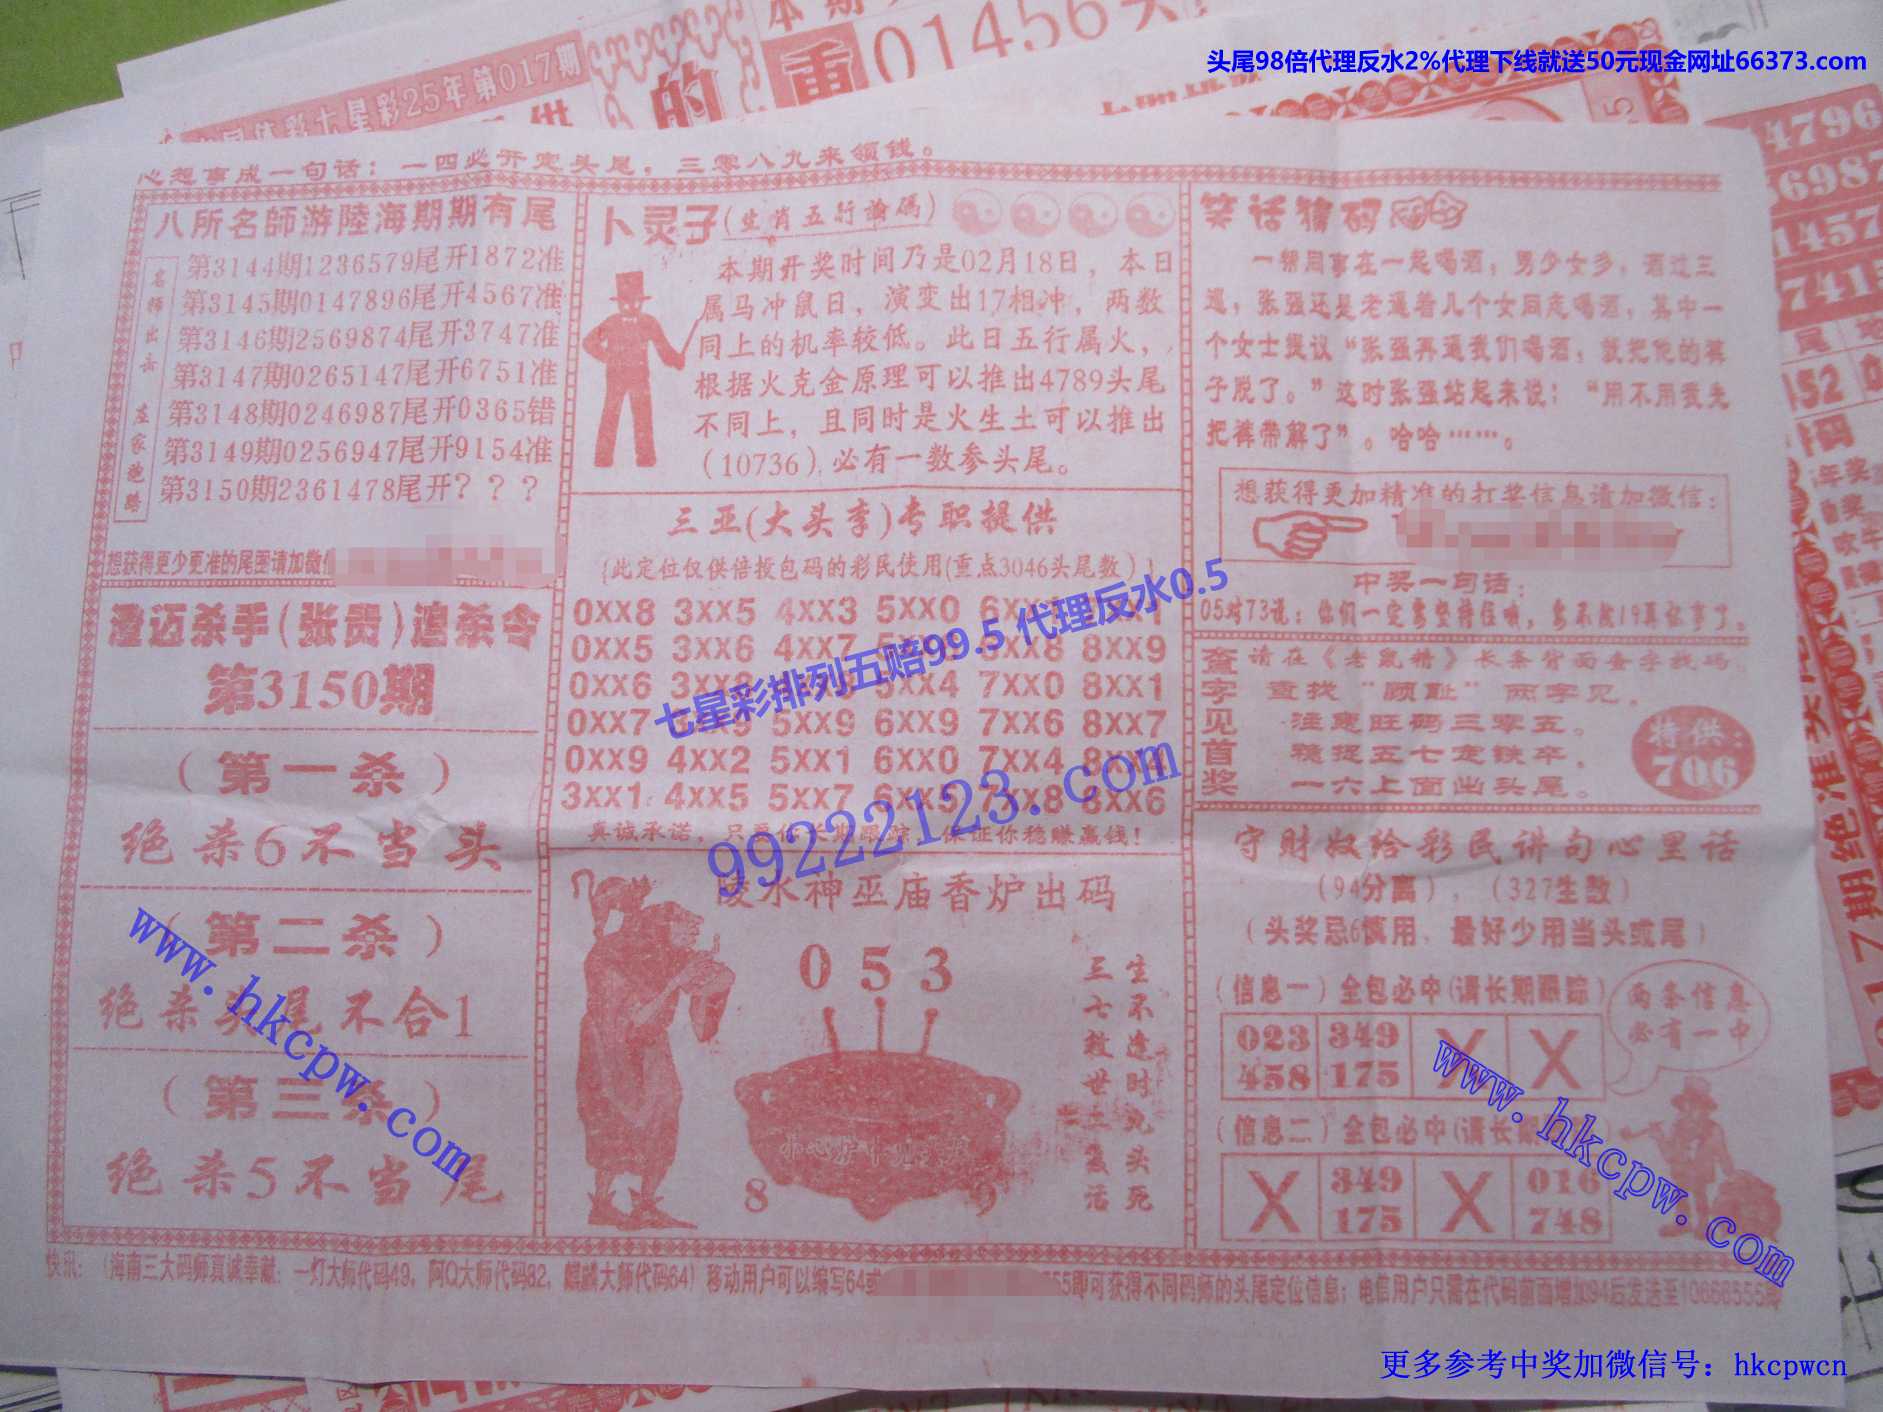 头尾98倍代理反水2%代理下线就送50元现金网址66373.com
七星彩25年第017期
01456
心想事成一句话：一四必开定头尾，三零八九来领钱。
八所名師游陸海期期有尾
第3144期1236579尾开1872准
第3145期0147896尾开4567准
第3146期2569874尾开3747准
第3147期0265147尾开6751准
第3148期0246987尾开0365错
第3149期0256947尾开9154准
第3150期2361478尾开？？？
想获得更少更准的尾图请加微信
澄迈杀手(张贵)追杀令
第3150期
(第一杀)
绝杀6不当头
(第二杀)
绝杀头尾不合1
(第三杀)
绝杀5不当尾
卜灵子(生肖五行論碼)
本期开奖时间乃是02月18日，本日
属马冲鼠日，演变出17相冲，两数
同上的机率较低。此日五行属火，
根据火克金原理可以推出4789头尾
不同上，且同时是火生土可以推出
(10736)必有一数参头尾。
三亚(大头李)专职提供
(此定位仅供倍投包码的彩民使用(重点3046头尾数)
0XX8 3XX5 4XX3 5XX0
0XX5 3XX6 4XX7 8XX9
0XX6 7XX0 8XX1
0XX7 5XX9 6XX9 7XX6 8XX7
0XX9 4XX2 5XX1 6XX0 7XX4 8XX4
3XX1 4XX5 5XX7 6XX5 7XX8 8XX6
七星彩排列五赔99.5 代理反水0.5
99222123.com
陵水神巫庙香炉出码
053
生不逢时九头死
三七救世主复活
8 9
笑话猜码
一帮同事在一起喝酒，男少女多，酒过三
巡，张强还是老逼着几个女同志喝酒，其中一
个女士提议“张强再逼我们喝酒，就把他的裤
子脱了。”这时张强站起来说：“用不用我先
把裤带解了”。哈哈……。
想获得更加精准的打奖信息请加微信：
中奖一句话：
查字见首奖
请在《老鼠精》长条背面查字找码
注意旺码三零五。
稳捉五七定铁卒，
一六上面出头尾。
特供：
706
守财奴给彩民讲句心里话
(94分离)，(327生数)
(头奖忌6慎用，最好少用当头或尾)
(信息一)全包必中(请长期跟踪)
023 349 X X
458 175
两条信息
必有一中
(信息二)全包必中(请长
X 349 X 016
175 748
快讯：(海南三大码师真诚奉献：一灯大师代码49，阿Q大师代码82，麒麟大师代码64)移动用户可以编写64或
55即可获得不同码师的头尾定位信息；电信用户只需在代码前面增加94后发送至10666555
www.hkcpw.com
www.hkcpw.com
更多参考中奖加微信号：hkcpwcn